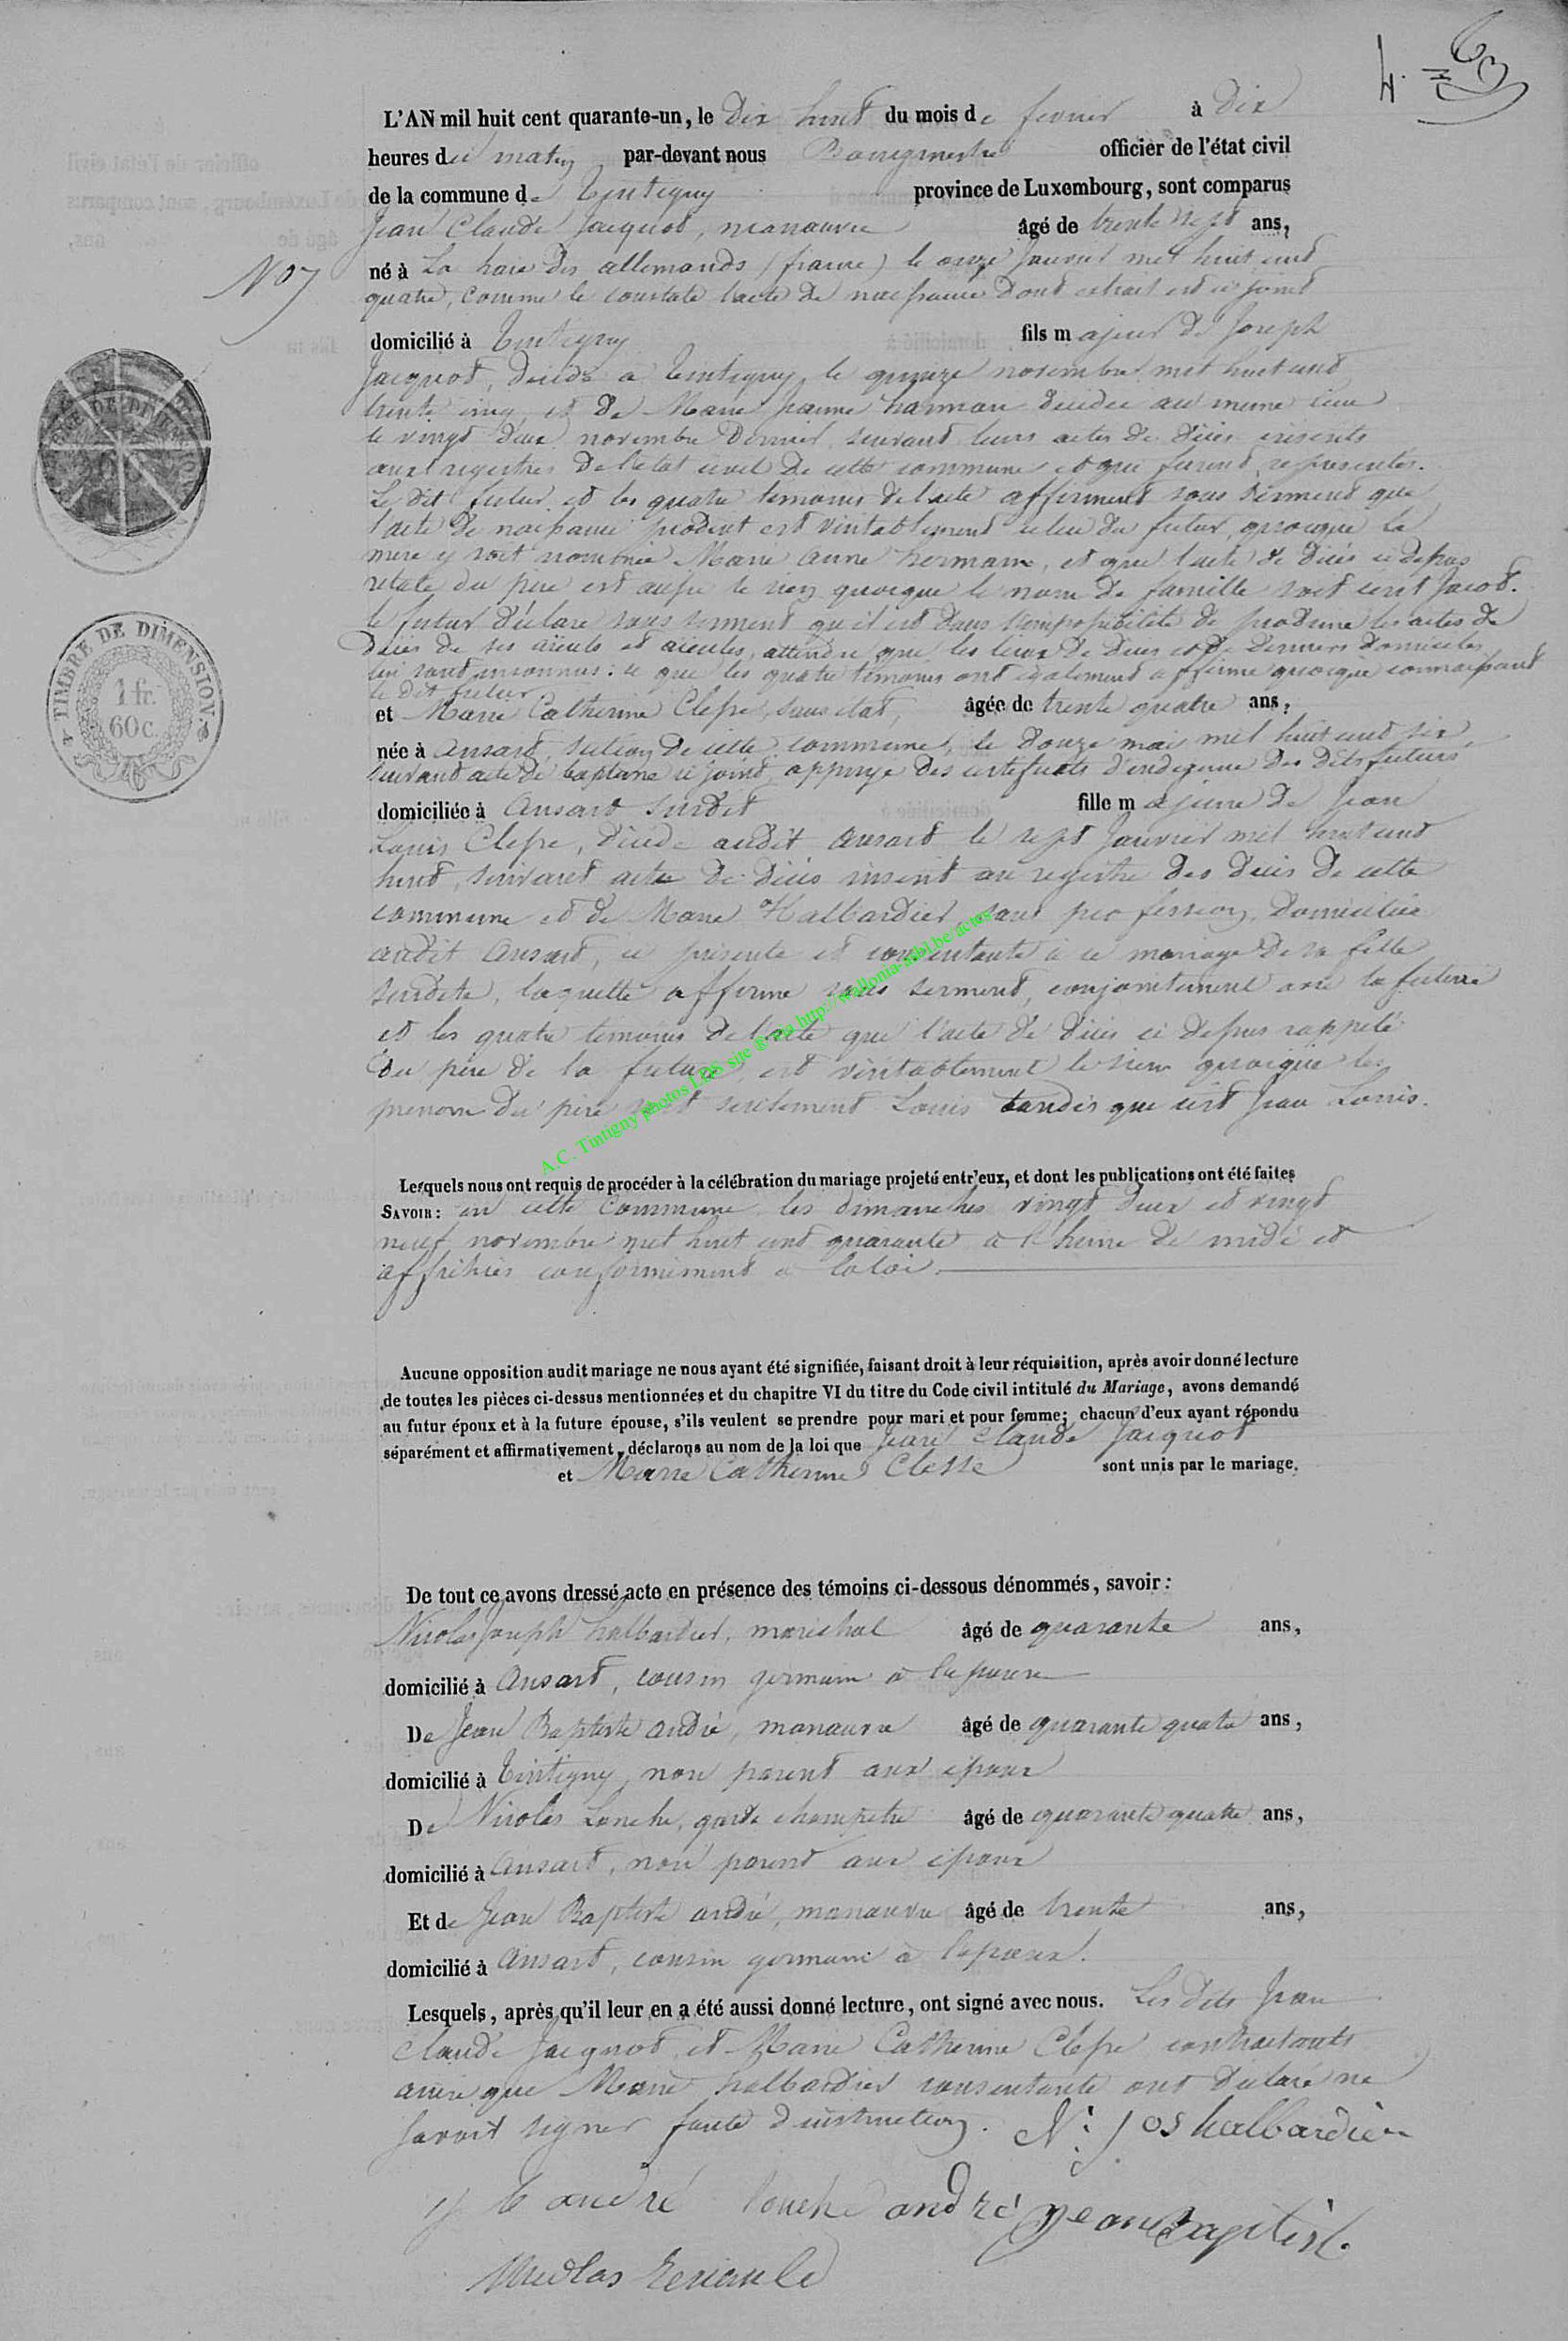 4. 63
L'AN mil huit cent quarante-un, le Dix huit du mois de fevrier à Dix
heures du matin par-devant nous Bourgmestre officier de l'état civil
de la commune de Tintigny province de Luxembourg, sont comparus
Jean Claude Jacquot, manœuvre âgé de trente sept ans,
No 7
né à La haie des allemands (france) le onze Janvier mil huit cent
quatre, comme le constate l'acte de naissance dont extrait est ci joint
domicilié à Tintigny fils majeur de Joseph
Jacquot, décédé a Tintigny le quinze novembre mil huit cent
trente cinq et de Marie Jeanne harman décédée au meme lieu
le vingt deux novembre dernier suivant leurs actes de décès inserits
aux registres de l'état civil de cette commune et qui furent representés.
Le dit futur et les quatre temoins de l'acte affirment sous serment que
l'acte de naissance produit est véritablement celui du futur, quoique la
mere y soit nommée Marie anne hermann, et que l'acte de décès ci dessus
relaté du pere est aussi le sien quoique le nom de famille soit ecrit Jacob.
le futur déclare sous serment qu'il est dans l'impossibilité de produire les actes de
décès de ses aïeuls et aïeules, attendu que les lieux de décès et de derniers domiciles
lui sont inconnus: ce que les quatre témoins ont également affirmé quoique connaissant
le dit futur
et Marie Catherine Clesse, sans etat, âgée de trente quatre ans,
née à Ansart, section de cette commune, le douze mai mil huit cent six
suivant acte de baptême ci joint, appuyé des certificats d'indigence des dits futurs
domiciliée à Ansart susdit fille majeure de Jean
Louis Clesse, décédé audit Ansart le sept Janvier mil huit cent
huit, suivant acte de décès inserit au registre des décès de cette
commune et de Marie Halbardier, sans profession, domiciliée
audit Ansart, ci présente et consentante à ce mariage de sa fille
susdite, laquelle affirme sous serment, conjointement avec la future
et les quatre témoins de l'acte que l'acte de décès ci dessus rappelé
du père de la future, est véritablement le sien quoique les
prenom du père soit seulement Louis tandis que c'est Jean Louis.
A.C. Tintigny photos LDS site @ via http://wallonia-asbl.be/actes
TIMBRE DE DIMENSION.
1 fr.
60 c.
Lesquels nous ont requis de procéder à la célébration du mariage projeté entr'eux, et dont les publications ont été faites
SAVOIR: en cette Commune les dimanches vingt deux et vingt
neuf novembre mil huit cent quarante à l'heure de midi et
affichées conformément à la loi.
Aucune opposition audit mariage ne nous ayant été signifiée, faisant droit à leur réquisition, après avoir donné lecture
de toutes les pièces ci-dessus mentionnées et du chapitre VI du titre du Code civil intitulé du Mariage, avons demandé
au futur époux et à la future épouse, s'ils veulent se prendre pour mari et pour femme; chacun d'eux ayant répondu
séparément et affirmativement, déclarons au nom de la loi que Jean Claude Jacquot
et Marie Catherine Clesse sont unis par le mariage.
De tout ce avons dressé acte en présence des témoins ci-dessous dénommés, savoir:
Nicolas Joseph halbardier, maréchal âgé de quarante ans,
domicilié à Ansart, cousin germain à l'epouse
De Jean Baptiste andré, manœuvre âgé de quarante quatre ans,
domicilié à Tintigny, non parent aux epoux
De Nicolas Louche, garde champetre âgé de quarante quatre ans,
domicilié à Ansart, non parent aux epoux
Et de Jean Baptiste andré, manœuvre âgé de trente ans,
domicilié à Ansart, cousin germain à l'epoux.
Lesquels, après qu'il leur en a été aussi donné lecture, ont signé avec nous. Les dits Jean
Claude Jacquot et Marie Catherine Clesse contractants
ainsi que Marie halbardier consentante ont déclaré ne
savoir signer faute d'instruction. N: Jos halbardier
J B andré Louche andré Jean Baptiste
Nicolas